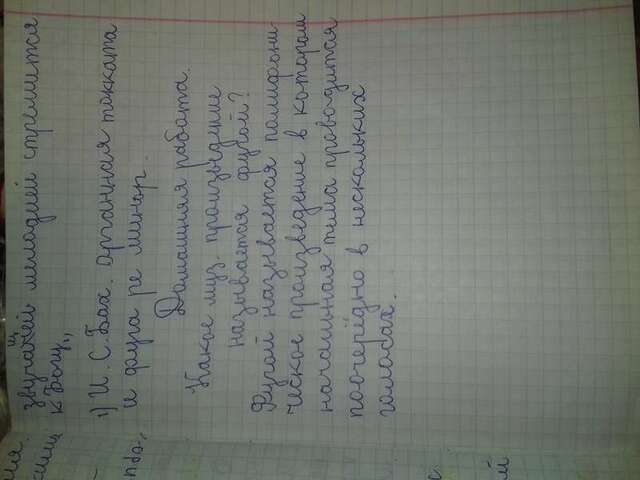 звучащей мелодии стремится
к Богу.,,
1) И. С. Бах. органная токката
и фуга ре минор.
Домашняя работа.
Какое муз. произведение
называется фугой?
Фугой называется полифони-
ческое произведение в котором
начальная тема проводится
поочерёдно в нескольких
голосах.